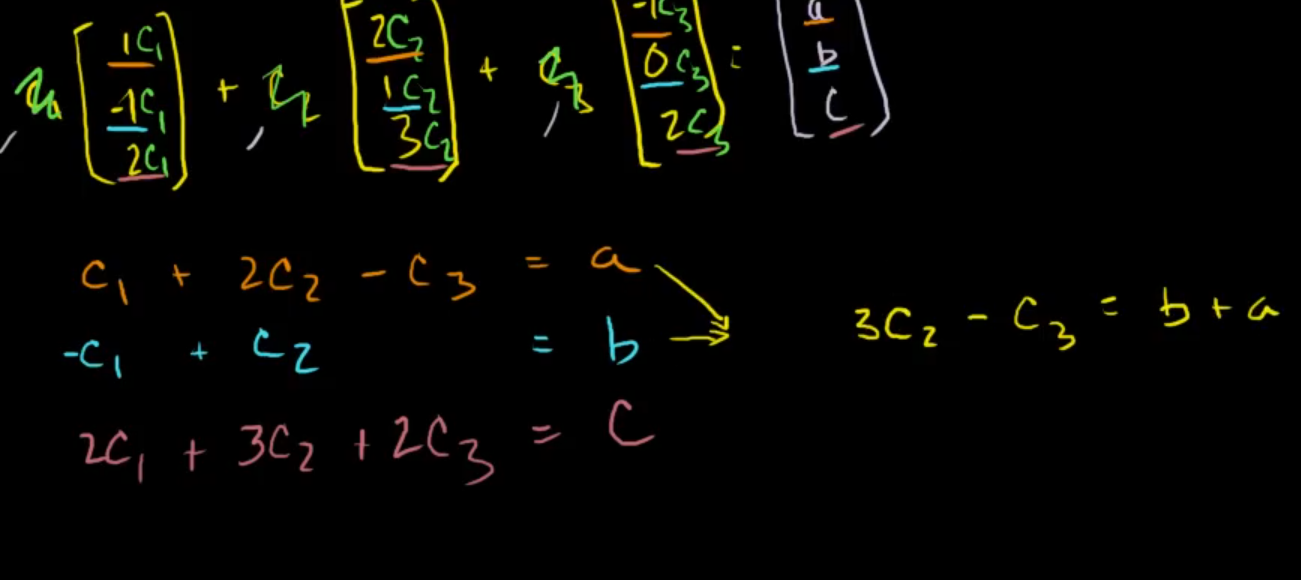 c₁ [1c₁ -1c₁ 2c₁] + c₂ [2c₂ 1c₂ 3c₂] + c₃ [-1c₃ 0c₃ 2c₃] = [a b c]
c₁ + 2c₂ - c₃ = a
3c₂ - c₃ = b + a
-c₁ + c₂ = b
2c₁ + 3c₂ + 2c₃ = c